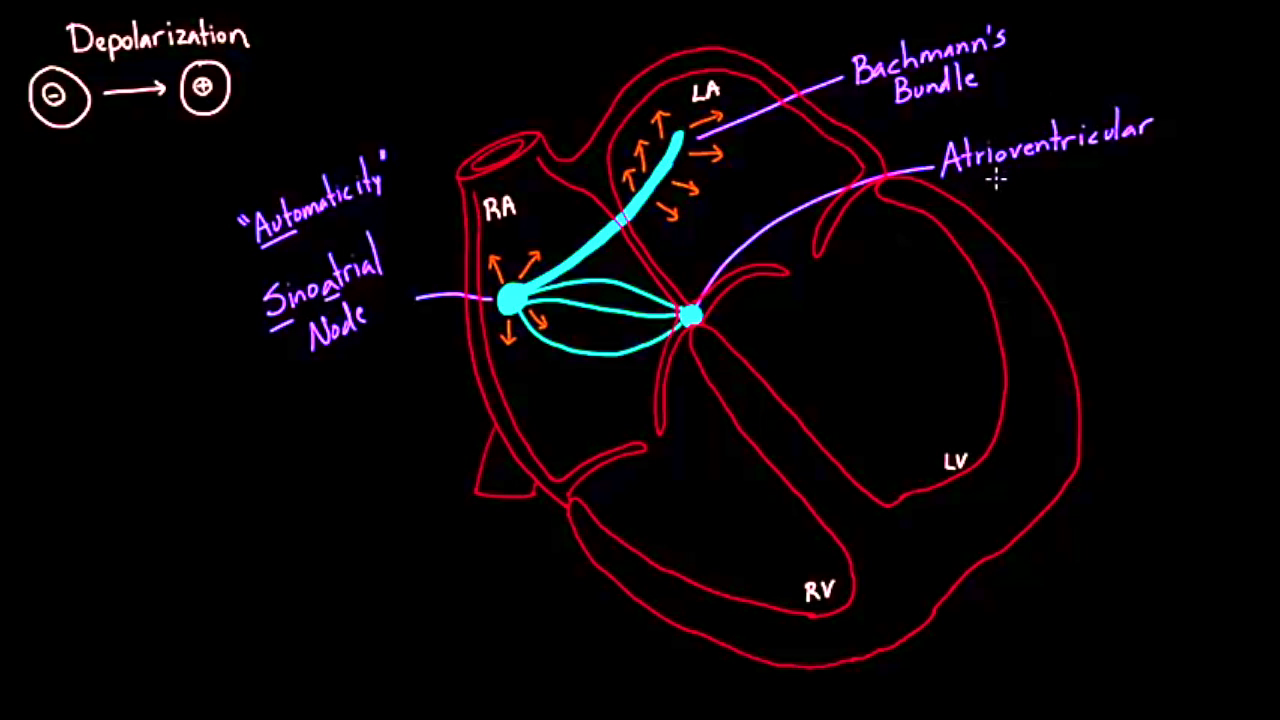 Depolarization
"Automaticity"
Sinoatrial
Node
RA
LA
Bachmann's
Bundle
Atrioventricular
LV
RV